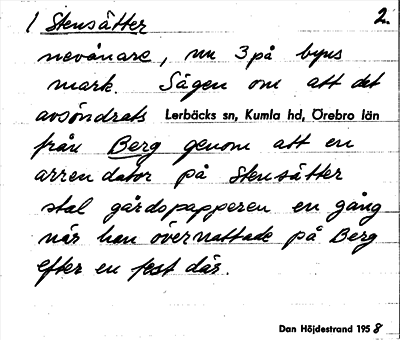 1 Stensätter 2.
nevånare, nu 3 på byns
mark. Sägen om att det
avsöndrats Lerbäcks sn, Kumla hd, Örebro län
från Berg genom att en
arrendator på Stensätter
stal gårdspapperen en gång
när han övernattade på Berg
efter en fest där.
Dan Höjdestrand 1958